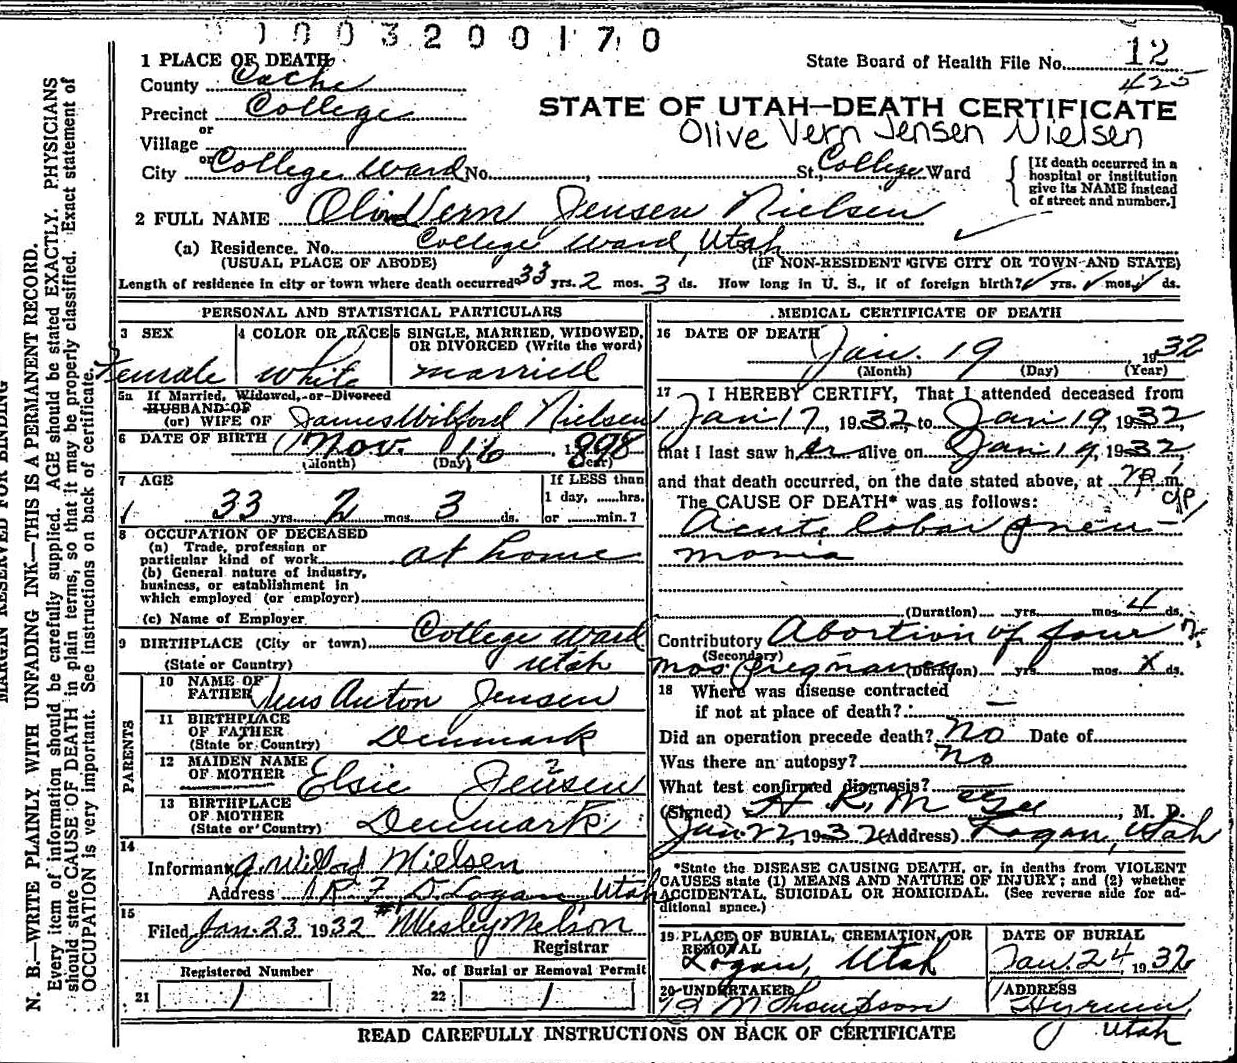 1003200170
1 PLACE OF DEATH
County Cache
Precinct College
or
Village
or
City College Ward No. St., College Ward
State Board of Health File No. 12
425
STATE OF UTAH—DEATH CERTIFICATE
Olive Vern Jensen Nielsen
[If death occurred in a
hospital or institution
give its NAME instead
of street and number.]
2 FULL NAME Olive Vern Jensen Nielsen
(a) Residence. No. College Ward, Utah
(USUAL PLACE OF ABODE) (IF NON-RESIDENT GIVE CITY OR TOWN AND STATE)
Length of residence in city or town where death occurred 33 yrs. 2 mos. 3 ds. How long in U. S., if of foreign birth? yrs. mos. ds.
PERSONAL AND STATISTICAL PARTICULARS
3 SEX 4 COLOR OR RACE 5 SINGLE, MARRIED, WIDOWED,
OR DIVORCED (Write the word)
Female White married
5a If Married, Widowed, or Divorced
HUSBAND OF
(or) WIFE OF James Wilford Nielsen
6 DATE OF BIRTH Nov. 16, 1898
(Month) (Day) (Year)
7 AGE If LESS than
1 day, ......hrs.
33 yrs. 2 mos. 3 ds. or ......min.?
8 OCCUPATION OF DECEASED
(a) Trade, profession or
particular kind of work at home
(b) General nature of industry,
business, or establishment in
which employed (or employer)
(c) Name of Employer
9 BIRTHPLACE (City or town) College Ward
(State or Country) Utah
PARENTS
10 NAME OF
FATHER Jens Anton Jensen
11 BIRTHPLACE
OF FATHER
(State or Country) Denmark
12 MAIDEN NAME
OF MOTHER Elsie Jensen
13 BIRTHPLACE
OF MOTHER
(State or Country) Denmark
14
Informant Nielsen
Address R.F.D. Logan Utah
15
Filed Jan. 23 1932 Wesley Nelson
Registrar
Registered Number No. of Burial or Removal Permit
21 1 22 1
MEDICAL CERTIFICATE OF DEATH
16 DATE OF DEATH
Jan. 19 1932
(Month) (Day) (Year)
17 I HEREBY CERTIFY, That I attended deceased from
Jan 17, 1932, to Jan 19, 1932,
that I last saw her alive on Jan 19, 1932,
and that death occurred, on the date stated above, at m.
The CAUSE OF DEATH* was as follows:
Acute lobar pneu-
monia
(Duration) yrs. mos. 4 ds.
Contributory Abortion of four
(Secondary)
mos pregnancy (Duration) yrs. mos. x ds.
18 Where was disease contracted
if not at place of death? —
Did an operation precede death? No Date of
Was there an autopsy? No
What test confirmed diagnosis?
(Signed) H R. McGee, M. D.
Jan 22, 1932 (Address) Logan, Utah
*State the DISEASE CAUSING DEATH, or, in deaths from VIOLENT
CAUSES state (1) MEANS AND NATURE OF INJURY; and (2) whether
ACCIDENTAL, SUICIDAL OR HOMICIDAL. (See reverse side for ad-
ditional space.)
19 PLACE OF BURIAL, CREMATION, OR
REMOVAL
Logan, Utah
DATE OF BURIAL
Jan. 24, 1932
20 UNDERTAKER
M Thompson
ADDRESS
Hyrum
Utah
READ CAREFULLY INSTRUCTIONS ON BACK OF CERTIFICATE
MARGIN RESERVED FOR BINDING
N. B.—WRITE PLAINLY WITH UNFADING INK—THIS IS A PERMANENT RECORD.
Every item of information should be carefully supplied. AGE should be stated EXACTLY. PHYSICIANS
should state CAUSE OF DEATH in plain terms, so that it may be properly classified. Exact statement of
OCCUPATION is very important. See instructions on back of certificate.